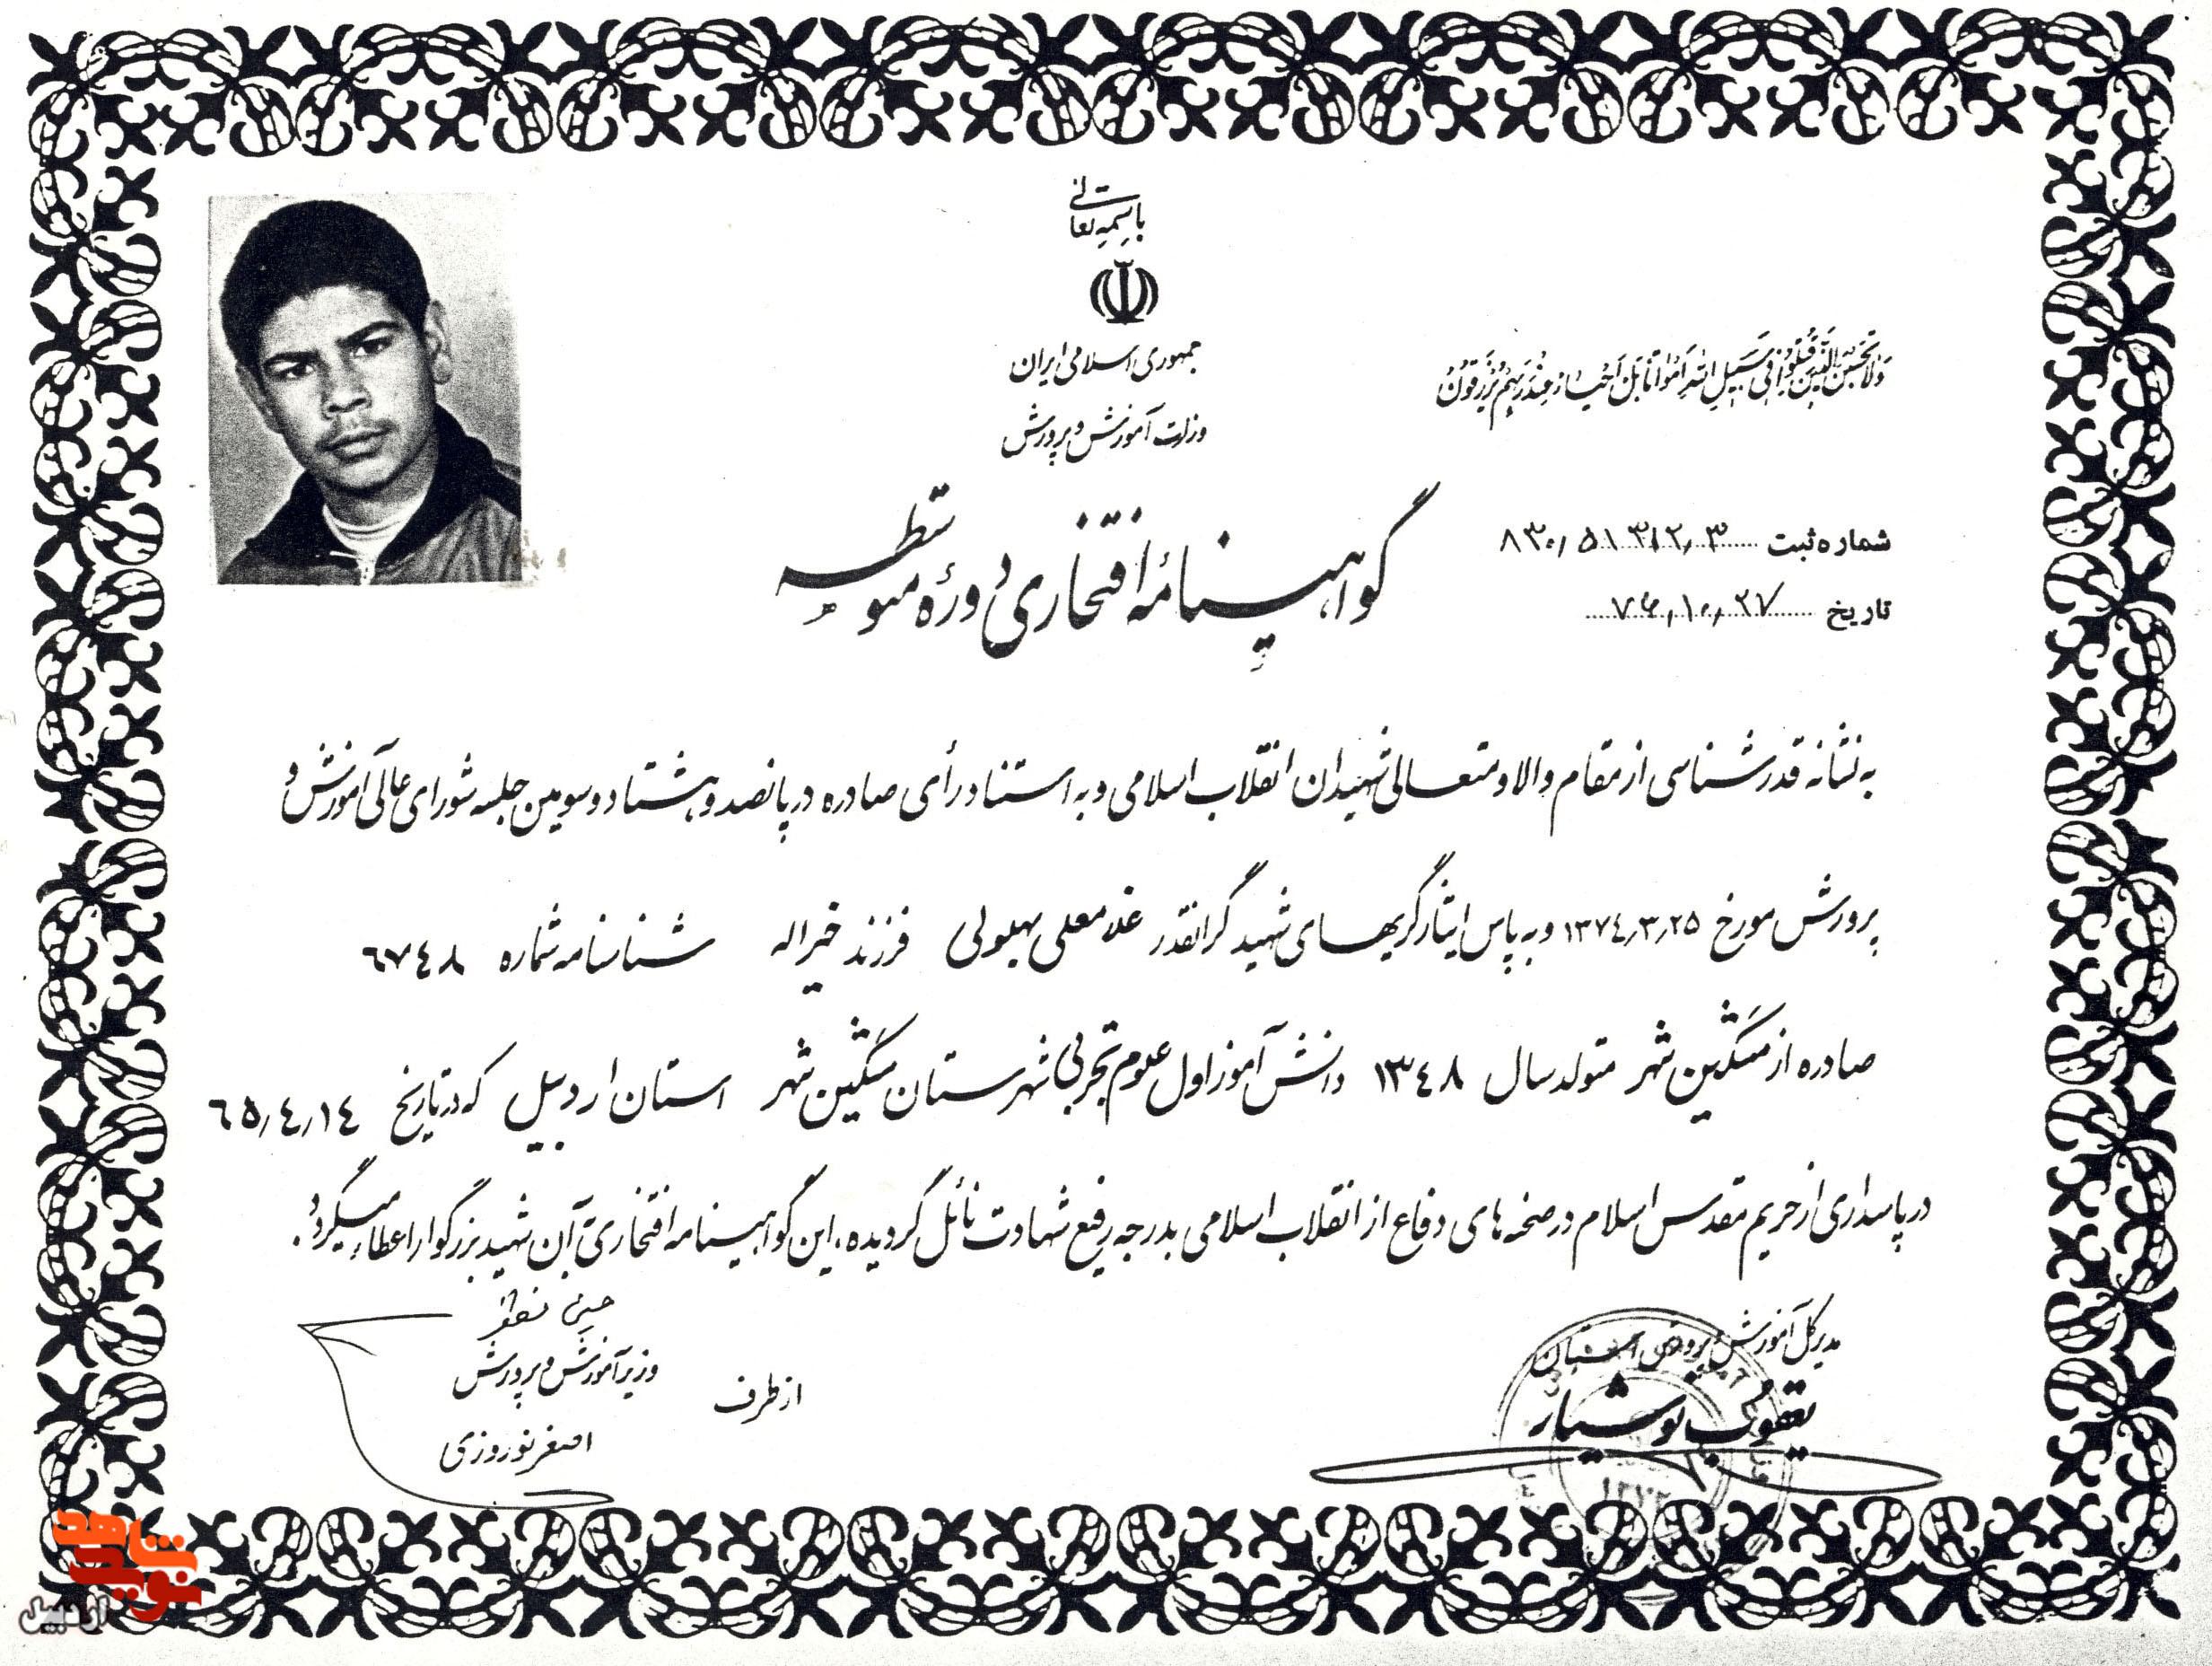 باسمه تعالی
جمهوری اسلامی ایران
وزارت آموزش و پرورش
وَلا تَحْسَبَنَّ الَّذینَ قُتِلُوا فی سَبیلِ اللهِ اَمْواتاً بَلْ اَحْیاءٌ عِنْدَ رَبِّهِمْ یُرْزَقُونَ
گواهینامهٔ افتخاری دورهٔ متوسطه
شماره ثبت
تاریخ ۷۶٫۱۰٫۲۷
به نشانه قدرشناسی از مقام والا و متعالی شهیدان انقلاب اسلامی و به استناد رأی صادره در پانصد و هشتاد و سومین جلسه شورای عالی آموزش و
پرورش مورخ ۱۳۷٤٫۳٫۲۵ و به پاس ایثارگریهای شهید گرانقدر غلامعلی بهلولی فرزند خیراله شناسنامه شماره ٦٧٤٨
صادره از مشگین شهر متولد سال ۱۳٤۸ دانش آموز اول علوم تجربی شهرستان مشگین شهر استان اردبیل که در تاریخ ٦۵٫٤٫۱٤
در پاسداری از حریم مقدس اسلام در صحنه های دفاع از انقلاب اسلامی بدرجه رفیع شهادت نائل گردیده، این گواهینامه افتخاری به آن شهید بزرگوار اعطاء میگردد.
مدیر کل آموزش و پرورش استان
یعقوب نوشیار
از طرف
حسین مظفر
وزیر آموزش و پرورش
اصغر نوروزی
نوید شاهد
اردبیل